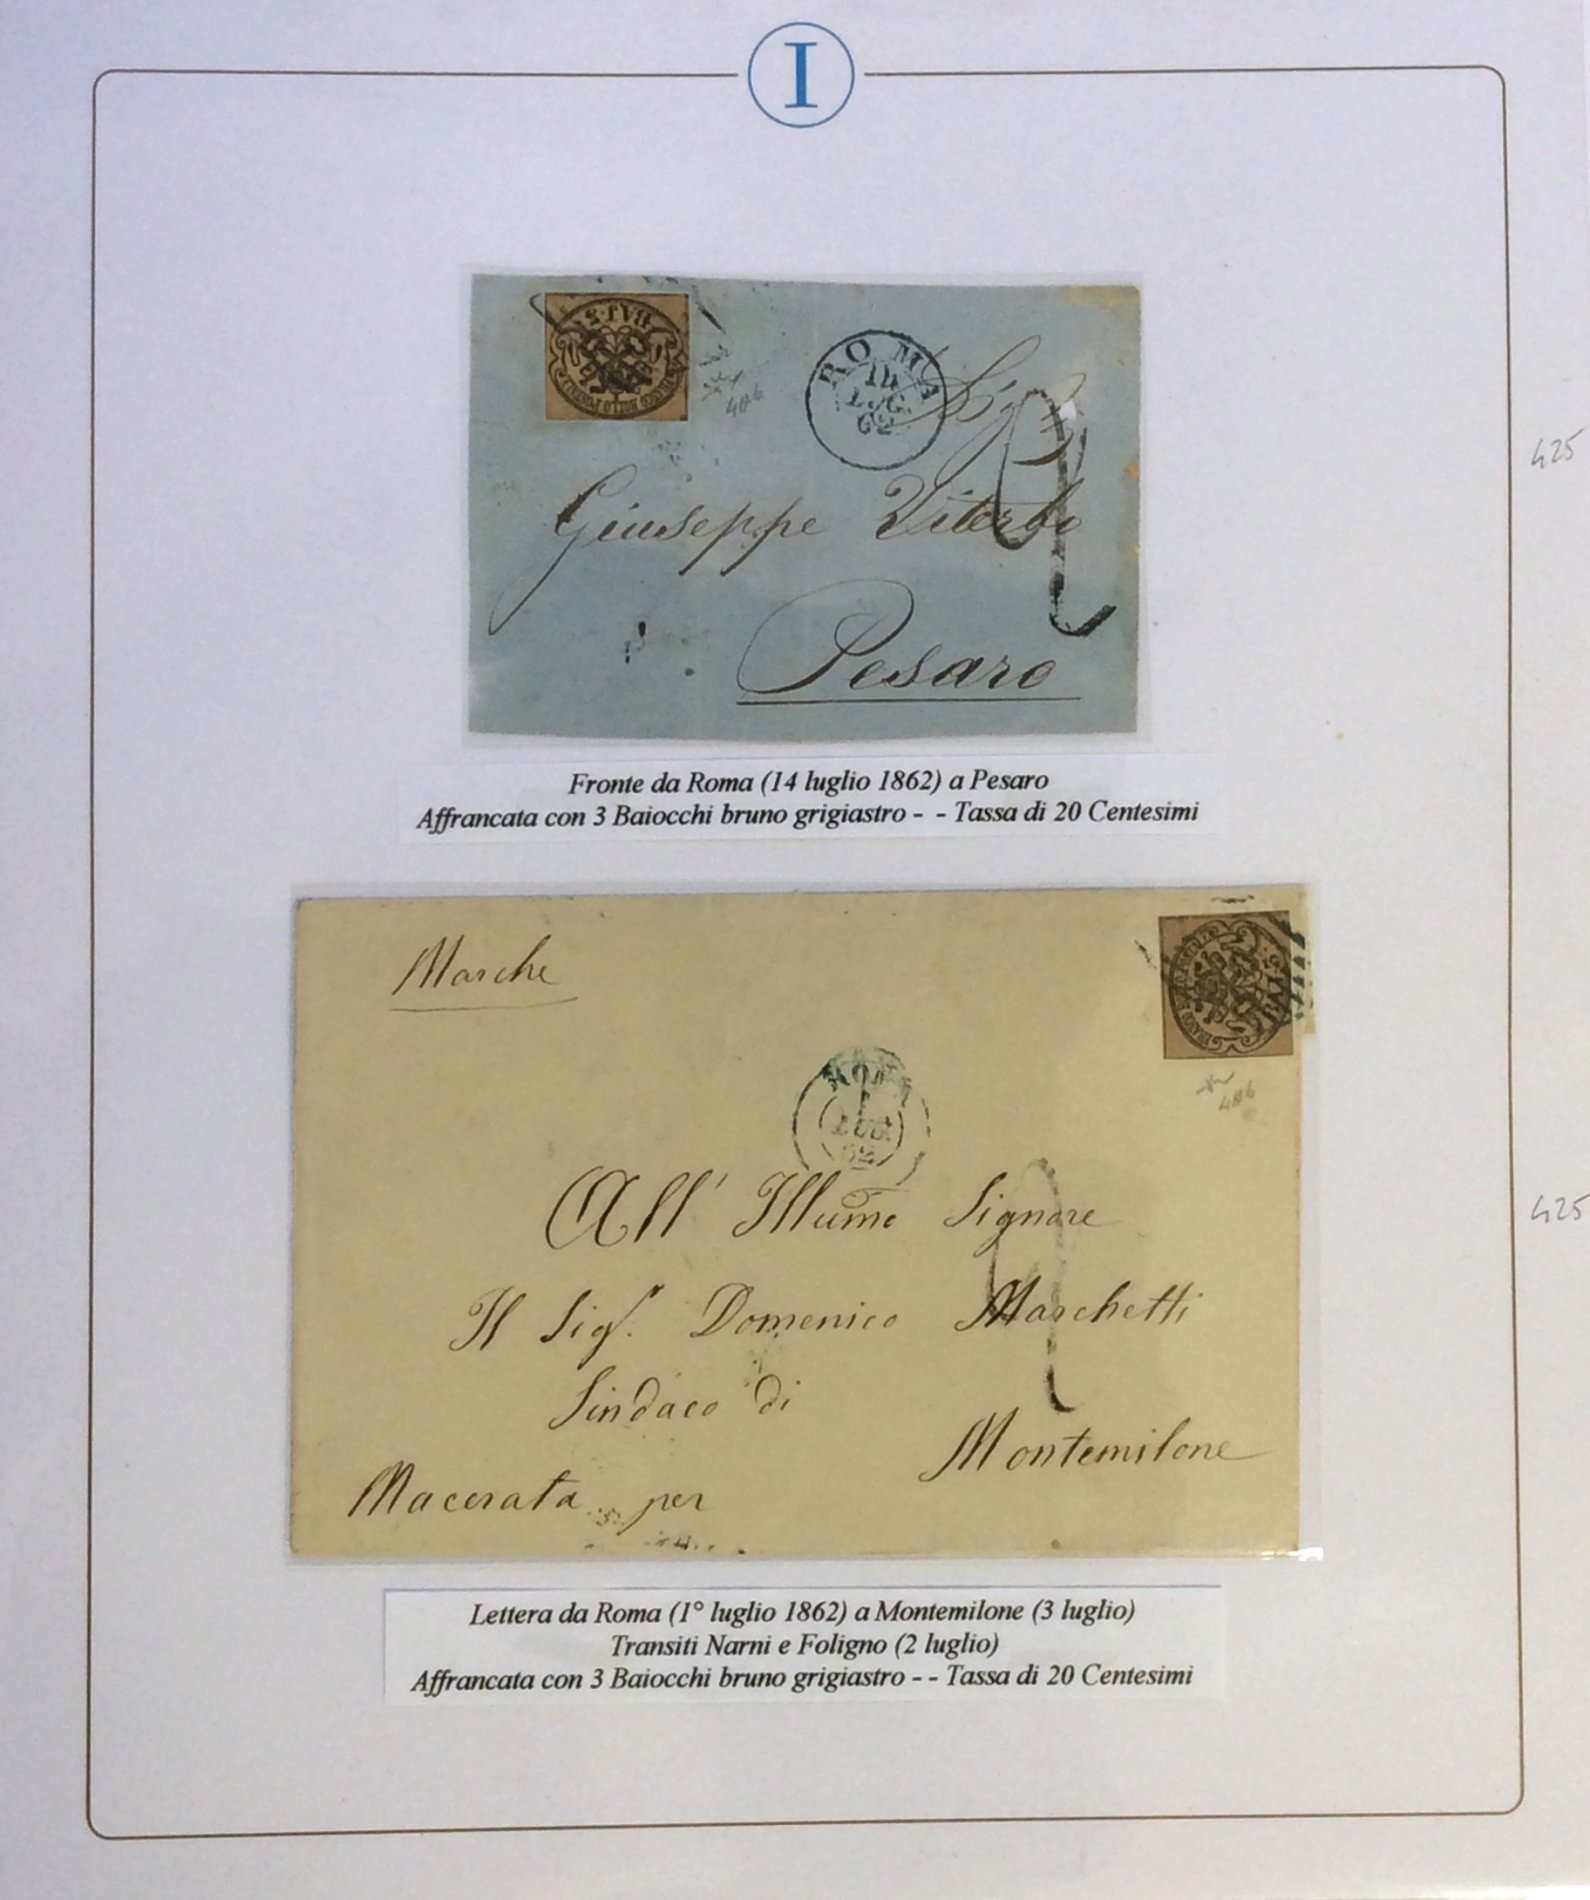 I
BAJ·3
ROMA
14
LUG
62
Sig.
406
2
Giuseppe Viterbo
Pesaro
425
Fronte da Roma (14 luglio 1862) a Pesaro
Affrancata con 3 Baiocchi bruno grigiastro - - Tassa di 20 Centesimi
Marche
BAJ·3
406
ROMA
1
LUG
62
2
All' Illumo Signore
425
Il Sigr. Domenico Marchetti
Sindaco di
Montemilone
Macerata per
Lettera da Roma (1° luglio 1862) a Montemilone (3 luglio)
Transiti Narni e Foligno (2 luglio)
Affrancata con 3 Baiocchi bruno grigiastro - - Tassa di 20 Centesimi